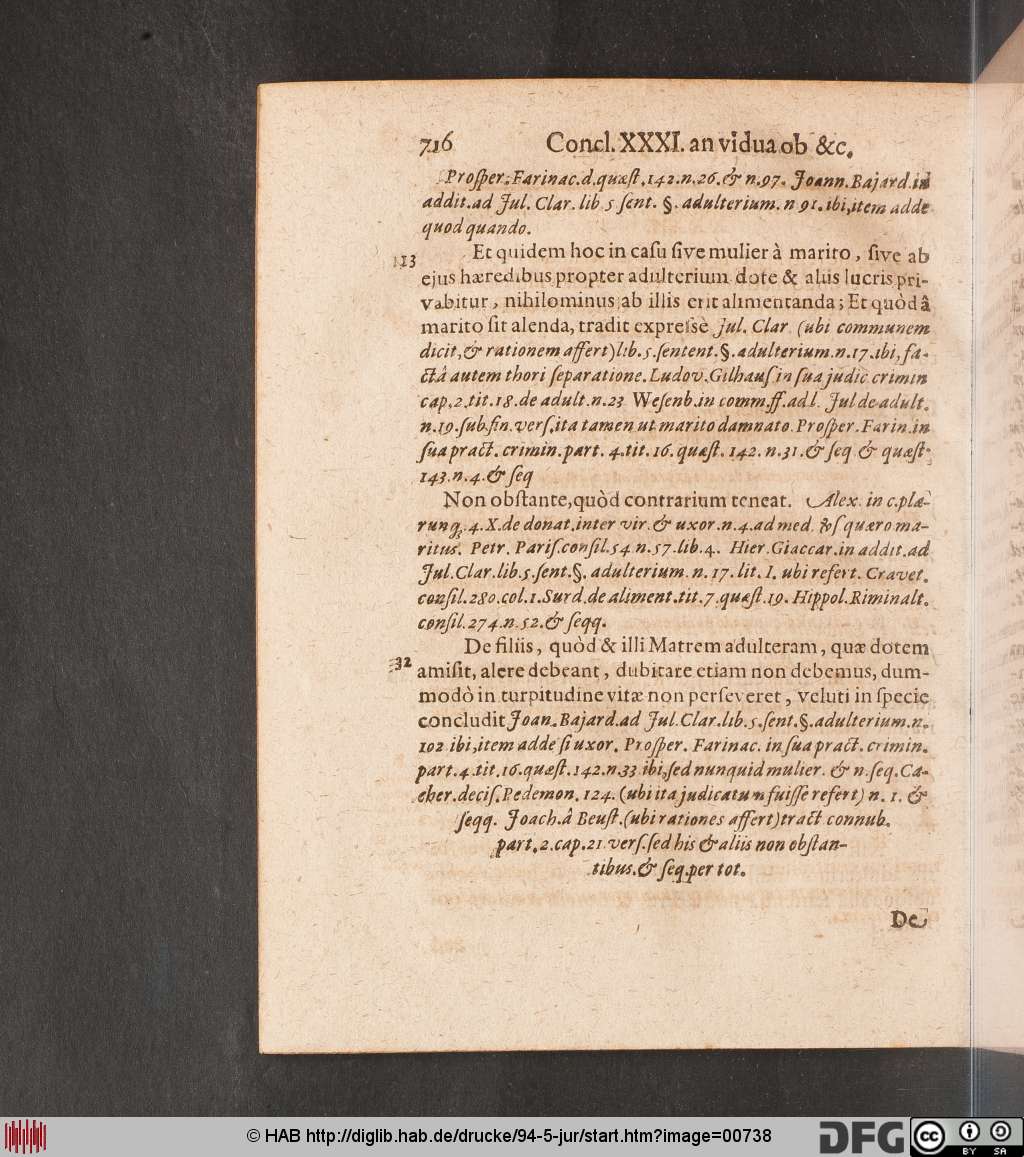 716 Concl. XXXI. an vidua ob &c.
Proſper. Farinac. d. quæſt. 142. n. 26. & n. 97. Joann. Bajard. in
addit. ad Jul. Clar. lib. 5 ſent. §. adulterium. n 91. ibi, item adde
quod quando.
Et quidem hoc in caſu ſive mulier à marito, ſive ab
113
ejus hæredibus propter adulterium dote & aliis lucris pri-
vabitur, nihilominus ab illis erit alimentanda; Et quòd â
marito ſit alenda, tradit expreſsè Jul. Clar. (ubi communem
dicit, & rationem affert) lib. 5. ſentent. §. adulterium. n. 17. ibi, fa-
ctâ autem thori ſeparatione. Ludov. Gilhauſ in ſua judic crimin
cap. 2. tit. 18. de adult. n. 23 Weſenb. in comm. ff. ad l. Jul de adult.
n. 19. ſub. fin. verſ. ita tamen ut marito damnato. Proſper. Farin. in
ſua pract. crimin. part. 4. tit. 16. quæſt. 142. n. 31. & ſeq & quæſt.
143. n. 4. & ſeq
Non obſtante, quòd contrarium teneat. Alex. in c. plæ-
runq; 4. X. de donat. inter vir. & uxor. n. 4. ad med. quæro ma-
ritus. Petr. Pariſ. conſil. 54 n. 57. lib. 4. Hier. Giaccar. in addit. ad
Jul. Clar. lib. 5. ſent. §. adulterium. n. 17. lit. I. ubi refert. Cravet.
conſil. 280. col. 1. Surd. de aliment. tit. 7. quæſt. 19. Hippol. Riminalt.
conſil. 274. n. 52. & ſeqq.
De filiis, quòd & illi Matrem adulteram, quæ dotem
32
amiſit, alere debeant, dubitare etiam non debemus, dum-
modò in turpitudine vitæ non perſeveret, veluti in ſpecie
concludit Joan. Bajard. ad Jul. Clar. lib. 5. ſent. §. adulterium. n.
102 ibi, item adde ſi uxor. Proſper. Farinac. in ſua pract. crimin.
part. 4. tit. 16. quæſt. 142. n. 33 ibi, ſed nunquid mulier. & n. ſeq. Ca-
cher. deciſ. Pedemon. 124. (ubi ita judicatum fuiſſe refert) n. 1. &
ſeqq. Joach. â Beuſt. (ubi rationes affert) tract connub.
part. 2. cap. 21 verſ. ſed his & aliis non obſtan-
tibus. & ſeq. per tot.
De
© HAB http://diglib.hab.de/drucke/94-5-jur/start.htm?image=00738
DFG
cc BY SA